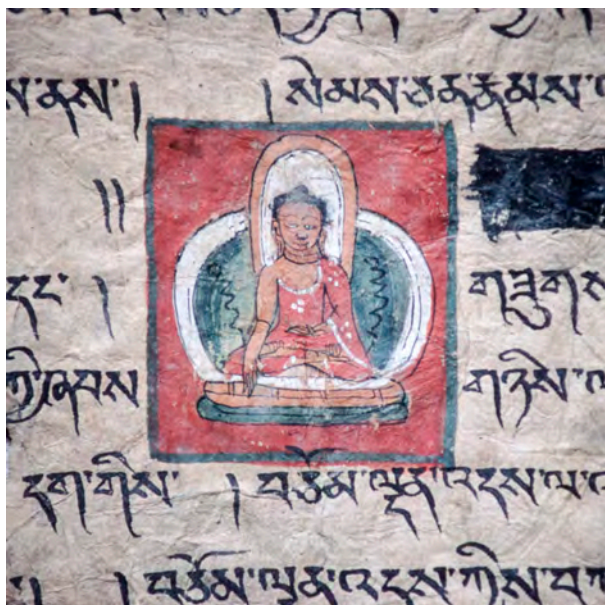 ས་ནས་། །སེམས་ཅན་རྣམས་
།།
དང་ ། གཟུགས
ཀྱི་ཞབས གཉིས་ལ
དག་གིས་ །བཅོམ་ལྡན་འདས་ལ་
། །བཅོམ་ལྡན་འདས་ཀྱིས་